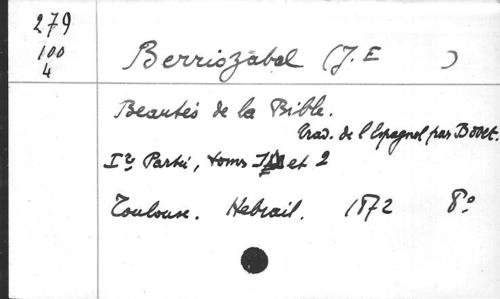 279
100
4
Berriozabal (J. E )
Beautés de la Bible.
trad. de l'Espagnol par
Ire Partie, toms 1 et 2
Toulouse. Hebrail. 1872 8o